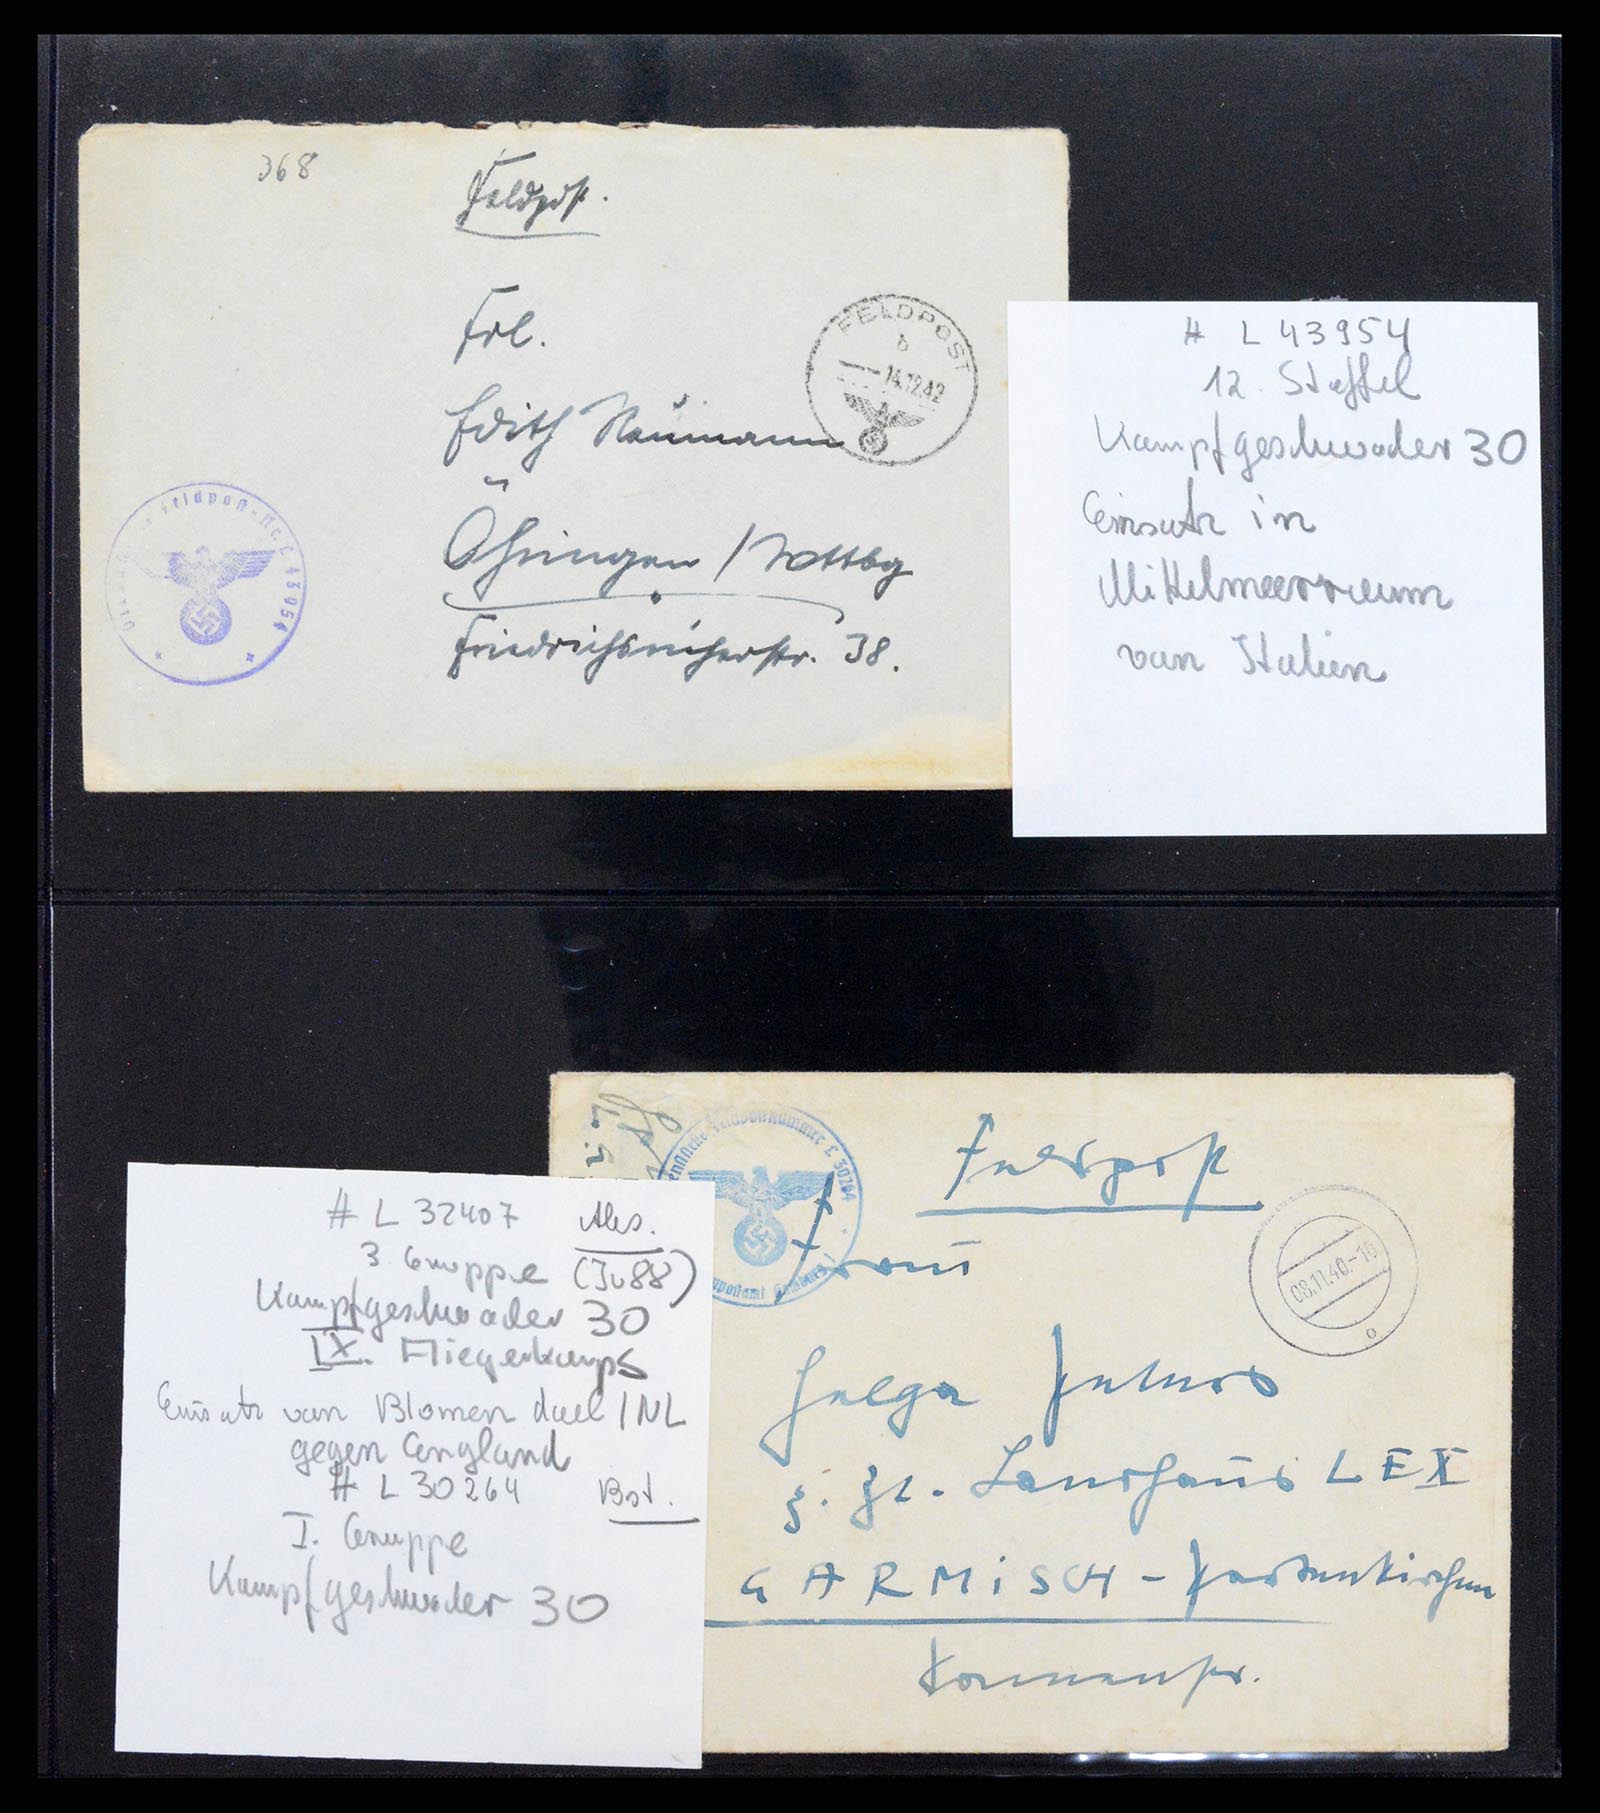 368
Feldpost.
Frl.
Edith Neumann
Öhringen / Wttbg
Friedrichsruherstr. 38.
FELDPOST
b
14.12.42
Feldpost-Nr. L 43954
# L 43954
12. Staffel
Kampfgeschwader 30
Einsatz in
Mittelmeerraum
van Italien
# L 32407 Abs.
3. Gruppe (Ju88)
Kampfgeschwader 30
IX. Fliegerkorps
Einsatz van Blomen dael / NL
gegen England
# L 30264 Bst.
I. Gruppe
Kampfgeschwader 30
Feldpostnummer L 30264
Feldpost
Frau
08.11.40.-10
o
Helga Peters
z. Zt. Landhaus LEX
GARMiSCH - Partenkirchen